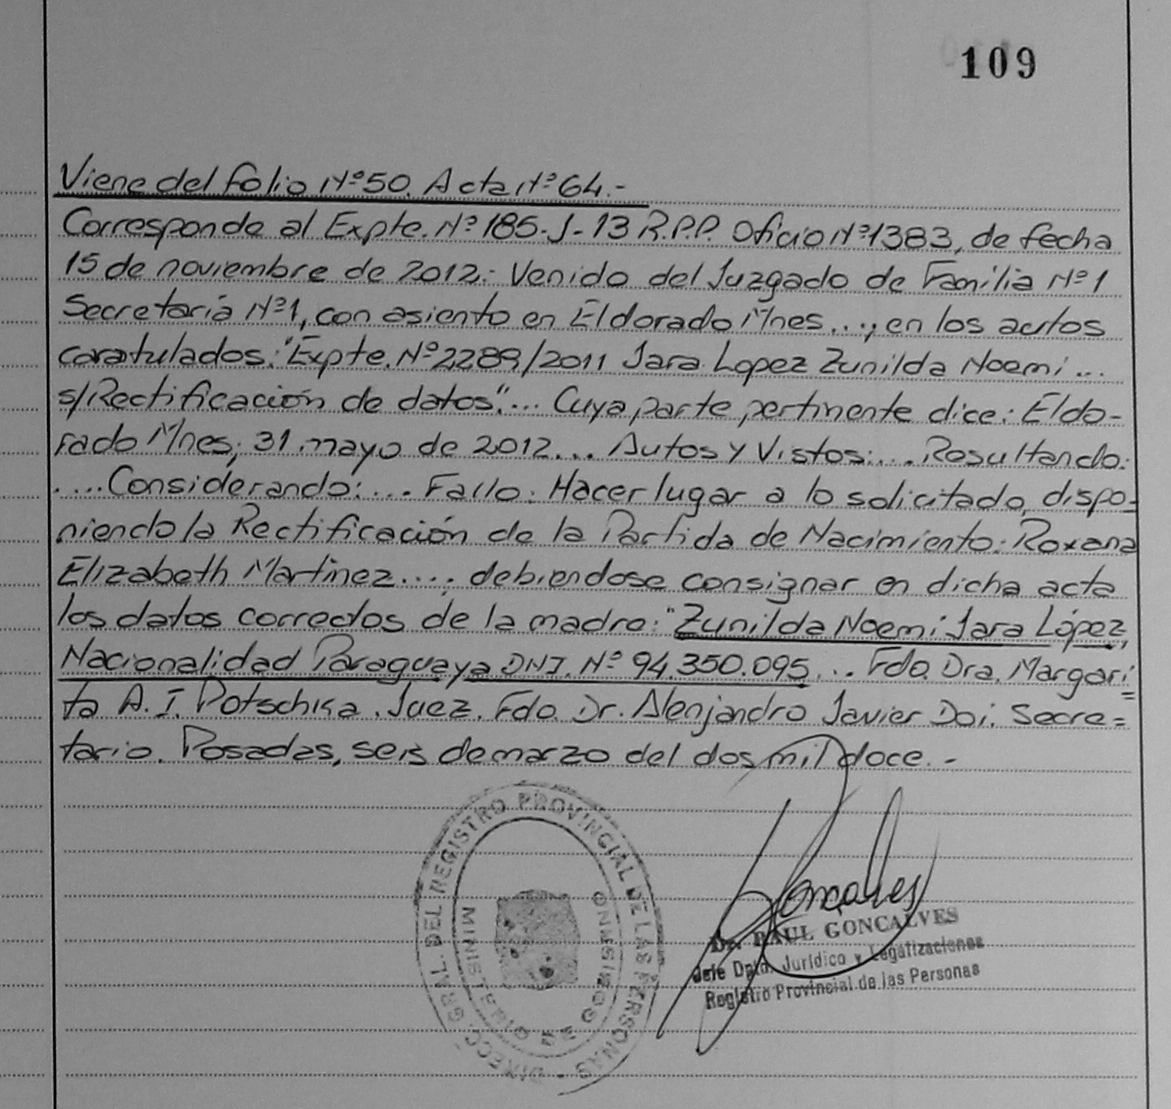 109
Viene del folio Nº50. Acta Nº64.-
Corresponde al Expte. Nº185-J-13 R.P.P. Oficio Nº1383, de fecha
15 de noviembre de 2012.- Venido del Juzgado de Familia Nº1
Secretaría Nº1, con asiento en Eldorado Mnes...; en los autos
caratulados: "Expte. Nº2289/2011 Jara Lopez Zunilda Noemi...
s/Rectificación de datos"... Cuya parte pertinente dice: Eldo-
rado Mnes; 31 mayo de 2012... Autos y Vistos:... Resultando:
....Considerando:.... Fallo: Hacer lugar a lo solicitado, dispo-
niendo la Rectificación de la Partida de Nacimiento: Roxana
Elizabeth Martinez.... debiendose consignar en dicha acta
los datos correctos de la madre: "Zunilda Noemi Jara López,
Nacionalidad Paraguaya DNI. Nº 94.350.095... Fdo. Dra. Margari=
ta A. I. Potschka. Juez. Fdo. Dr. Alenjandro Javier Doi. Secre=
tario. Posadas, seis de marzo del dos mil doce.-
DIRECC. GRAL. DEL REGISTRO PROVINCIAL DE LAS PERSONAS
MINISTERIO DE GOBIERNO
Goncalves
Dr. RAUL GONCALVES
Jefe Dpto. Jurídico y Legalizaciones
Registro Provincial de las Personas